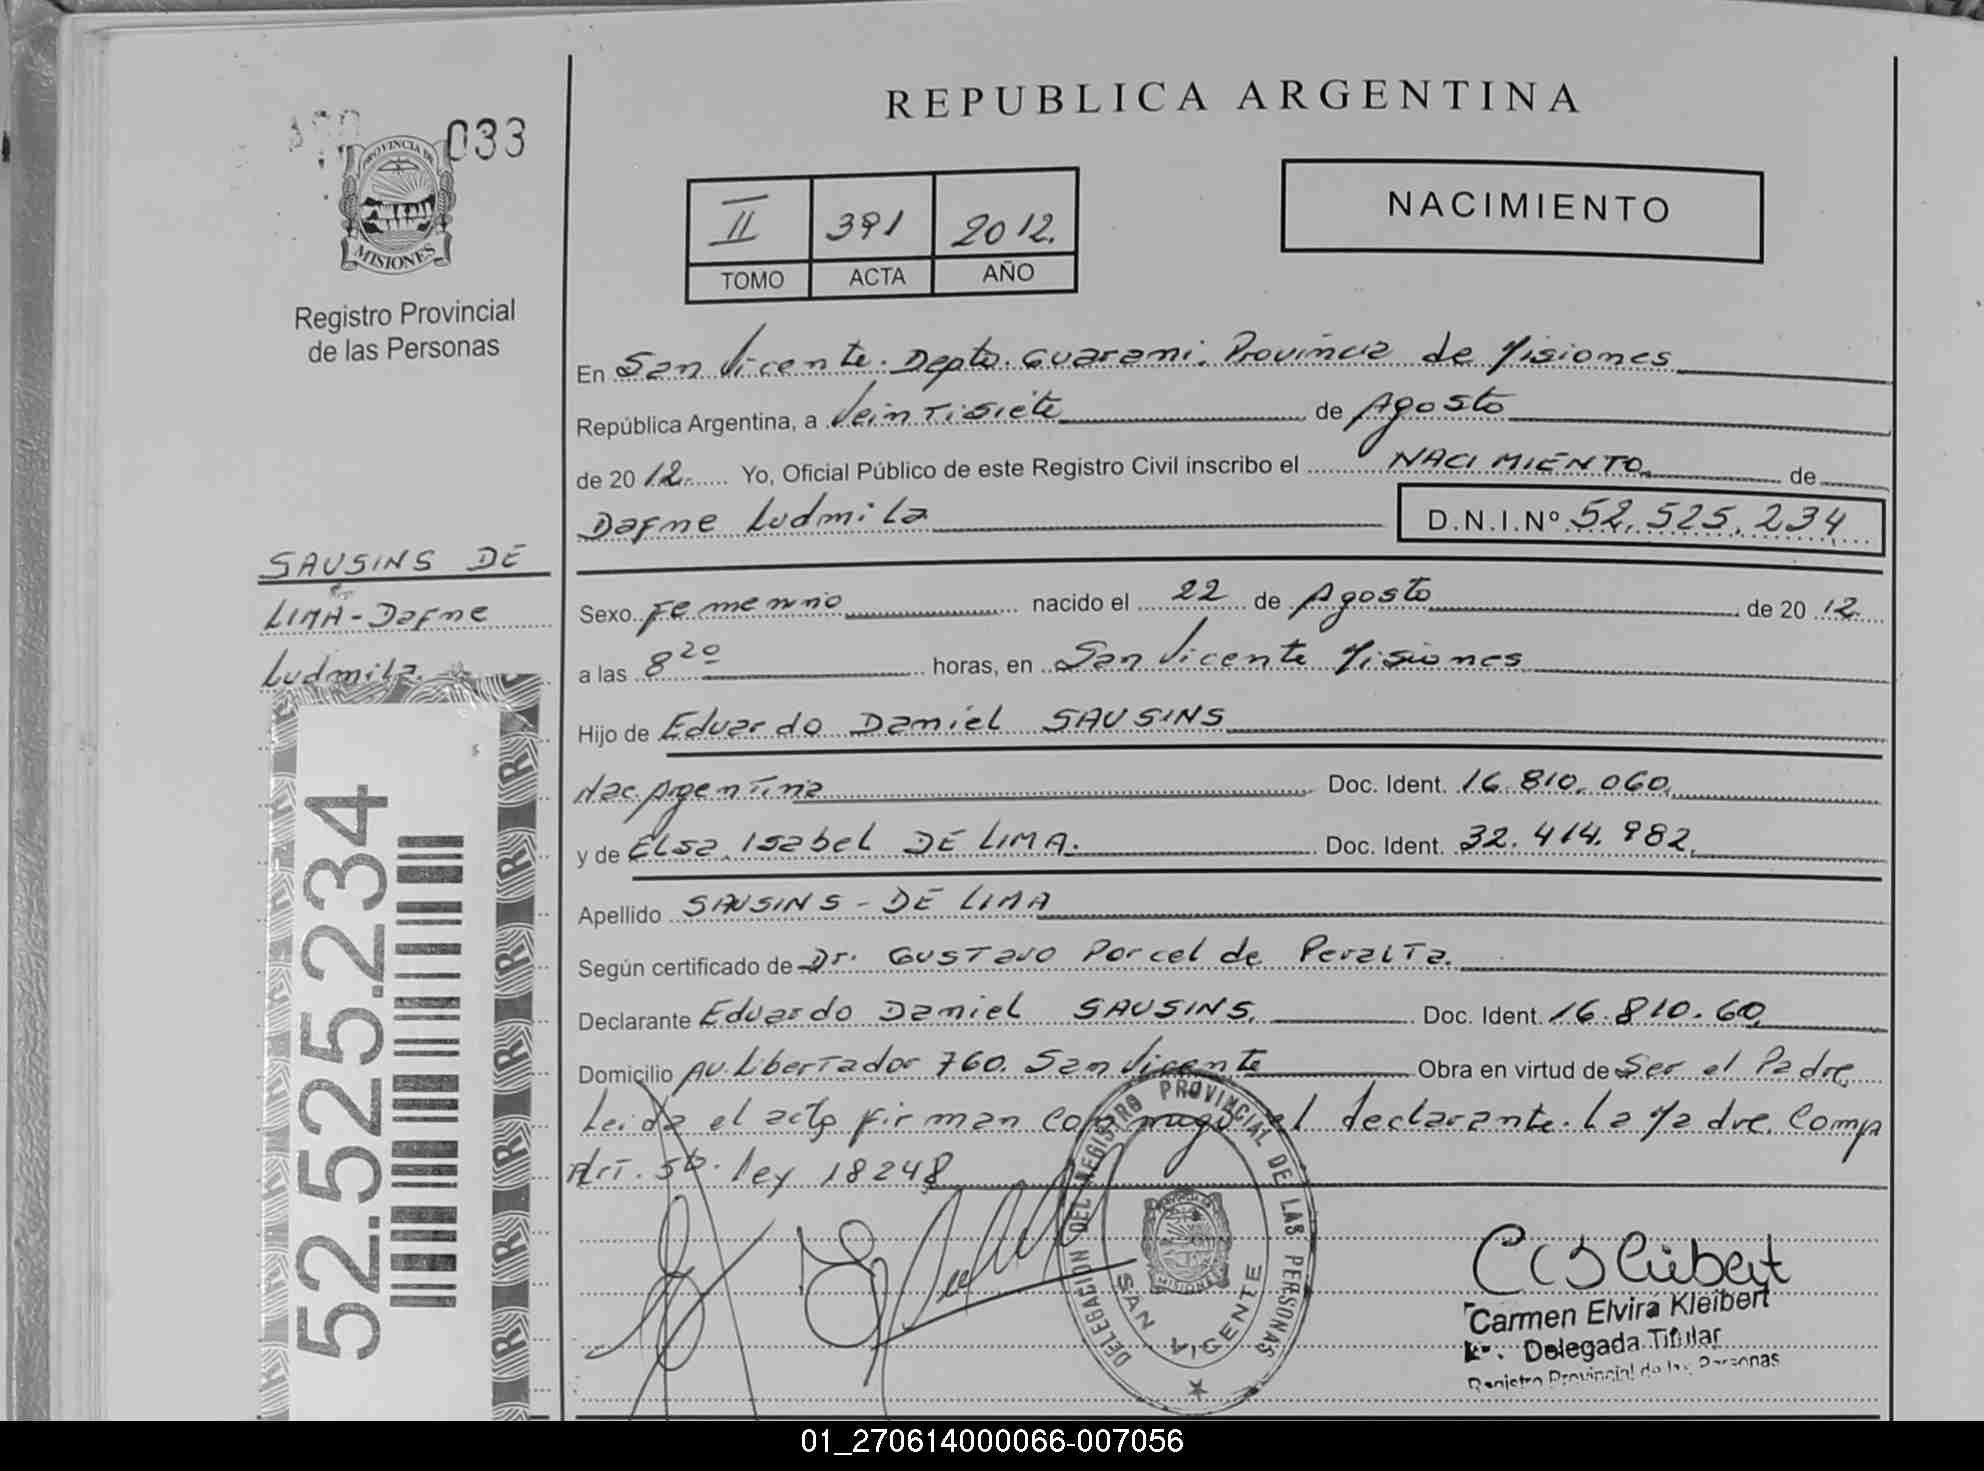 REPUBLICA ARGENTINA
033
PROVINCIA DE
MISIONES
Registro Provincial
de las Personas
II 391 2012.
TOMO ACTA AÑO
NACIMIENTO
En San Vicente. Depto. Guarani. Provincia de Misiones
República Argentina, a Veintisiete de Agosto
de 2012. Yo, Oficial Público de este Registro Civil inscribo el NACIMIENTO de
Dafne Ludmila D.N.I.Nº 52.525.234
SAUSINS DE
LIMA - Dafne
Ludmila.
Sexo Femenino nacido el 22 de Agosto de 2012.
a las 8 20 horas, en San Vicente Misiones
Hijo de Eduardo Daniel SAUSINS
Nac. Argentina Doc. Ident. 16.810.060.
y de Elsa Isabel DE LIMA. Doc. Ident. 32.414.982.
Apellido SAUSINS - DE LIMA
Según certificado de Dr. Gustavo Porcel de Peralta.
Declarante Eduardo Daniel SAUSINS. Doc. Ident. 16.810.60
Domicilio Av. Libertador 760. San Vicente Obra en virtud de Ser el Padre
Leida el acta firman conmigo el declarante. La Madre. Comp
Art. 5b. ley 18248
52.525.234
DELEGACION DEL REGISTRO PROVINCIAL DE LAS PERSONAS
MISIONES
SAN VICENTE
Carmen Elvira Kleibert
Delegada Titular
Registro Provincial de las Personas
01_270614000066-007056